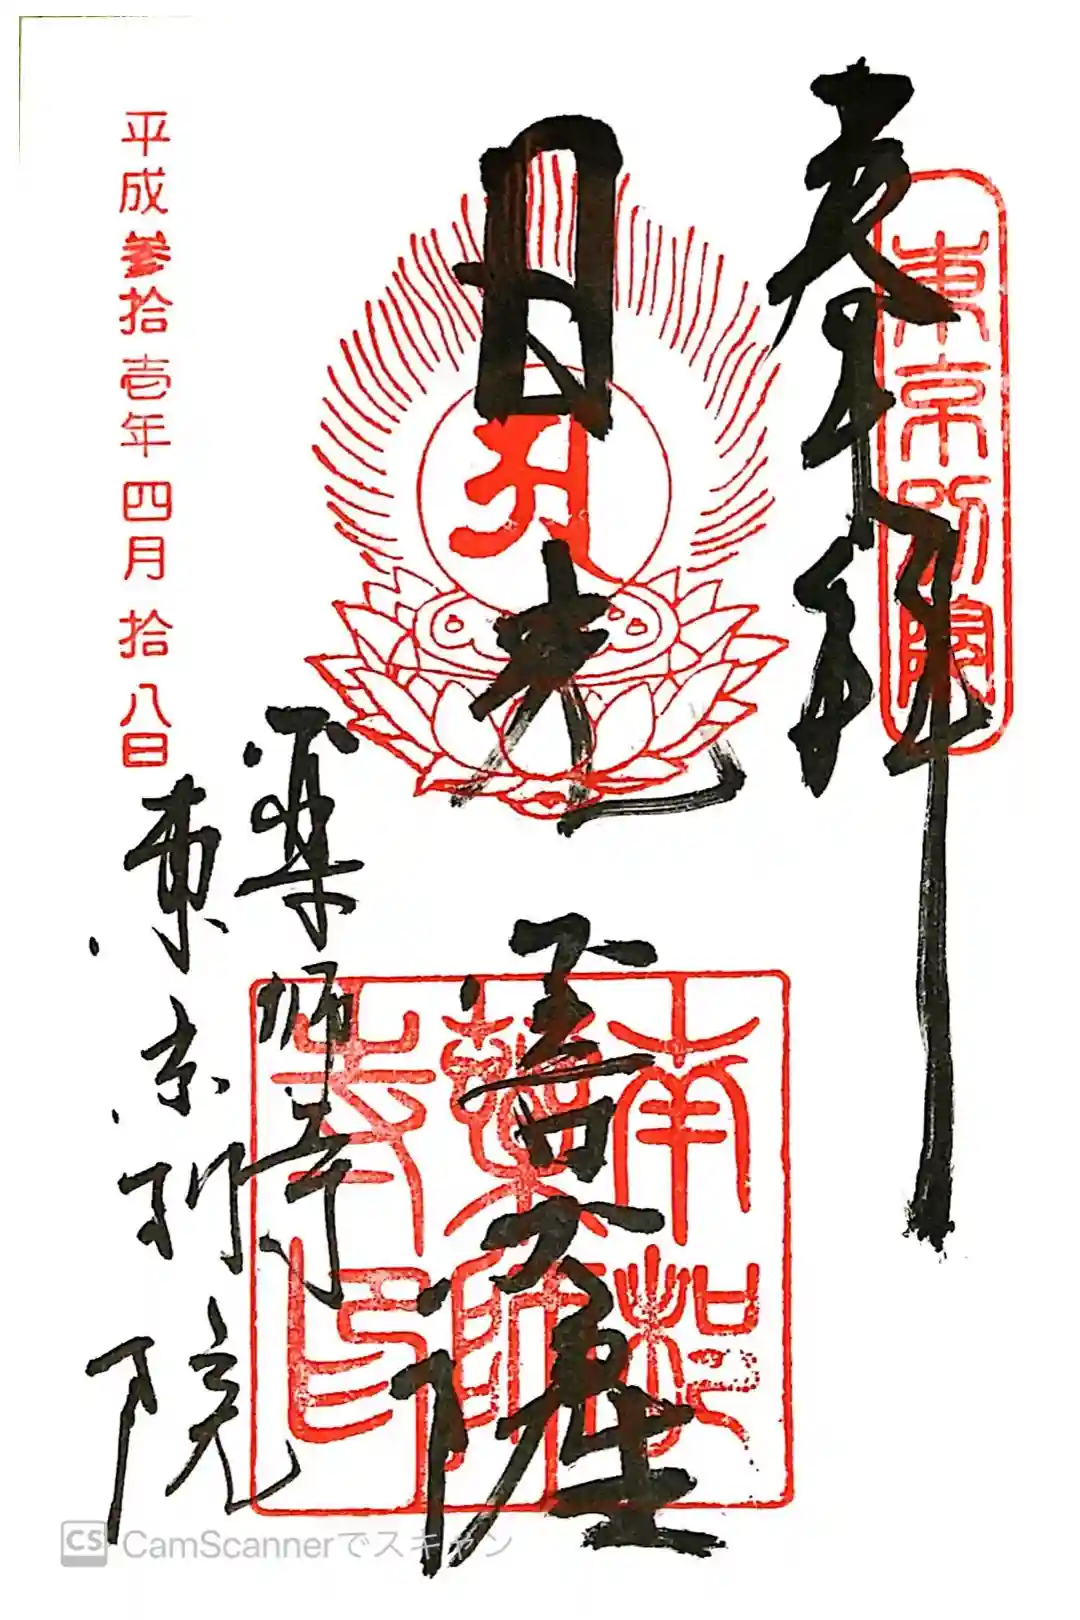 奉拝
東京別院
日光菩薩
南
藥師
寺印
薬師寺
東京別院
平成参拾壱年四月拾八日
CS CamScannerでスキャン